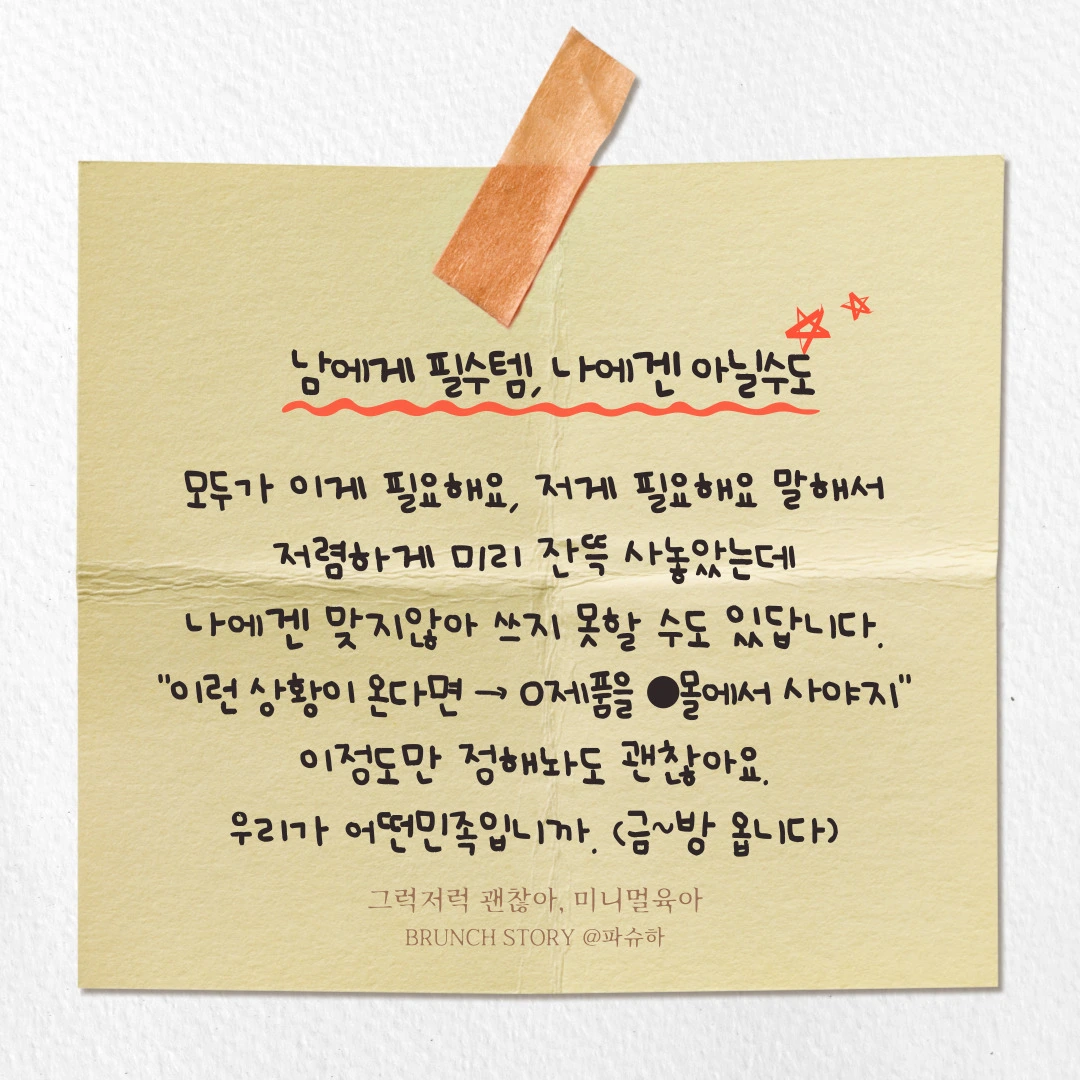 남에게 필수템, 나에겐 아닐수도
모두가 이게 필요해요, 저게 필요해요 말해서
저렴하게 미리 잔뜩 사놓았는데
나에겐 맞지않아 쓰지 못할 수도 있답니다.
"이런 상황이 온다면 → O제품을 ●몰에서 사야지"
이정도만 정해놔도 괜찮아요.
우리가 어떤민족입니까. (금~방 옵니다)
그럭저럭 괜찮아, 미니멀육아
BRUNCH STORY @파슈하